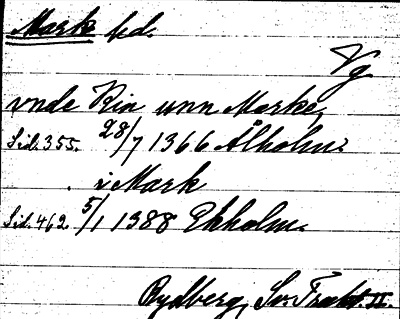 Mark hd.
Vg
vnde Kin unn Marke,
Sid. 355. 28/7 1366 Ålholm.
i Mark
Sid. 462. 5/1 1388 Ekholm.
Rydberg, Sv. Trakt. II.